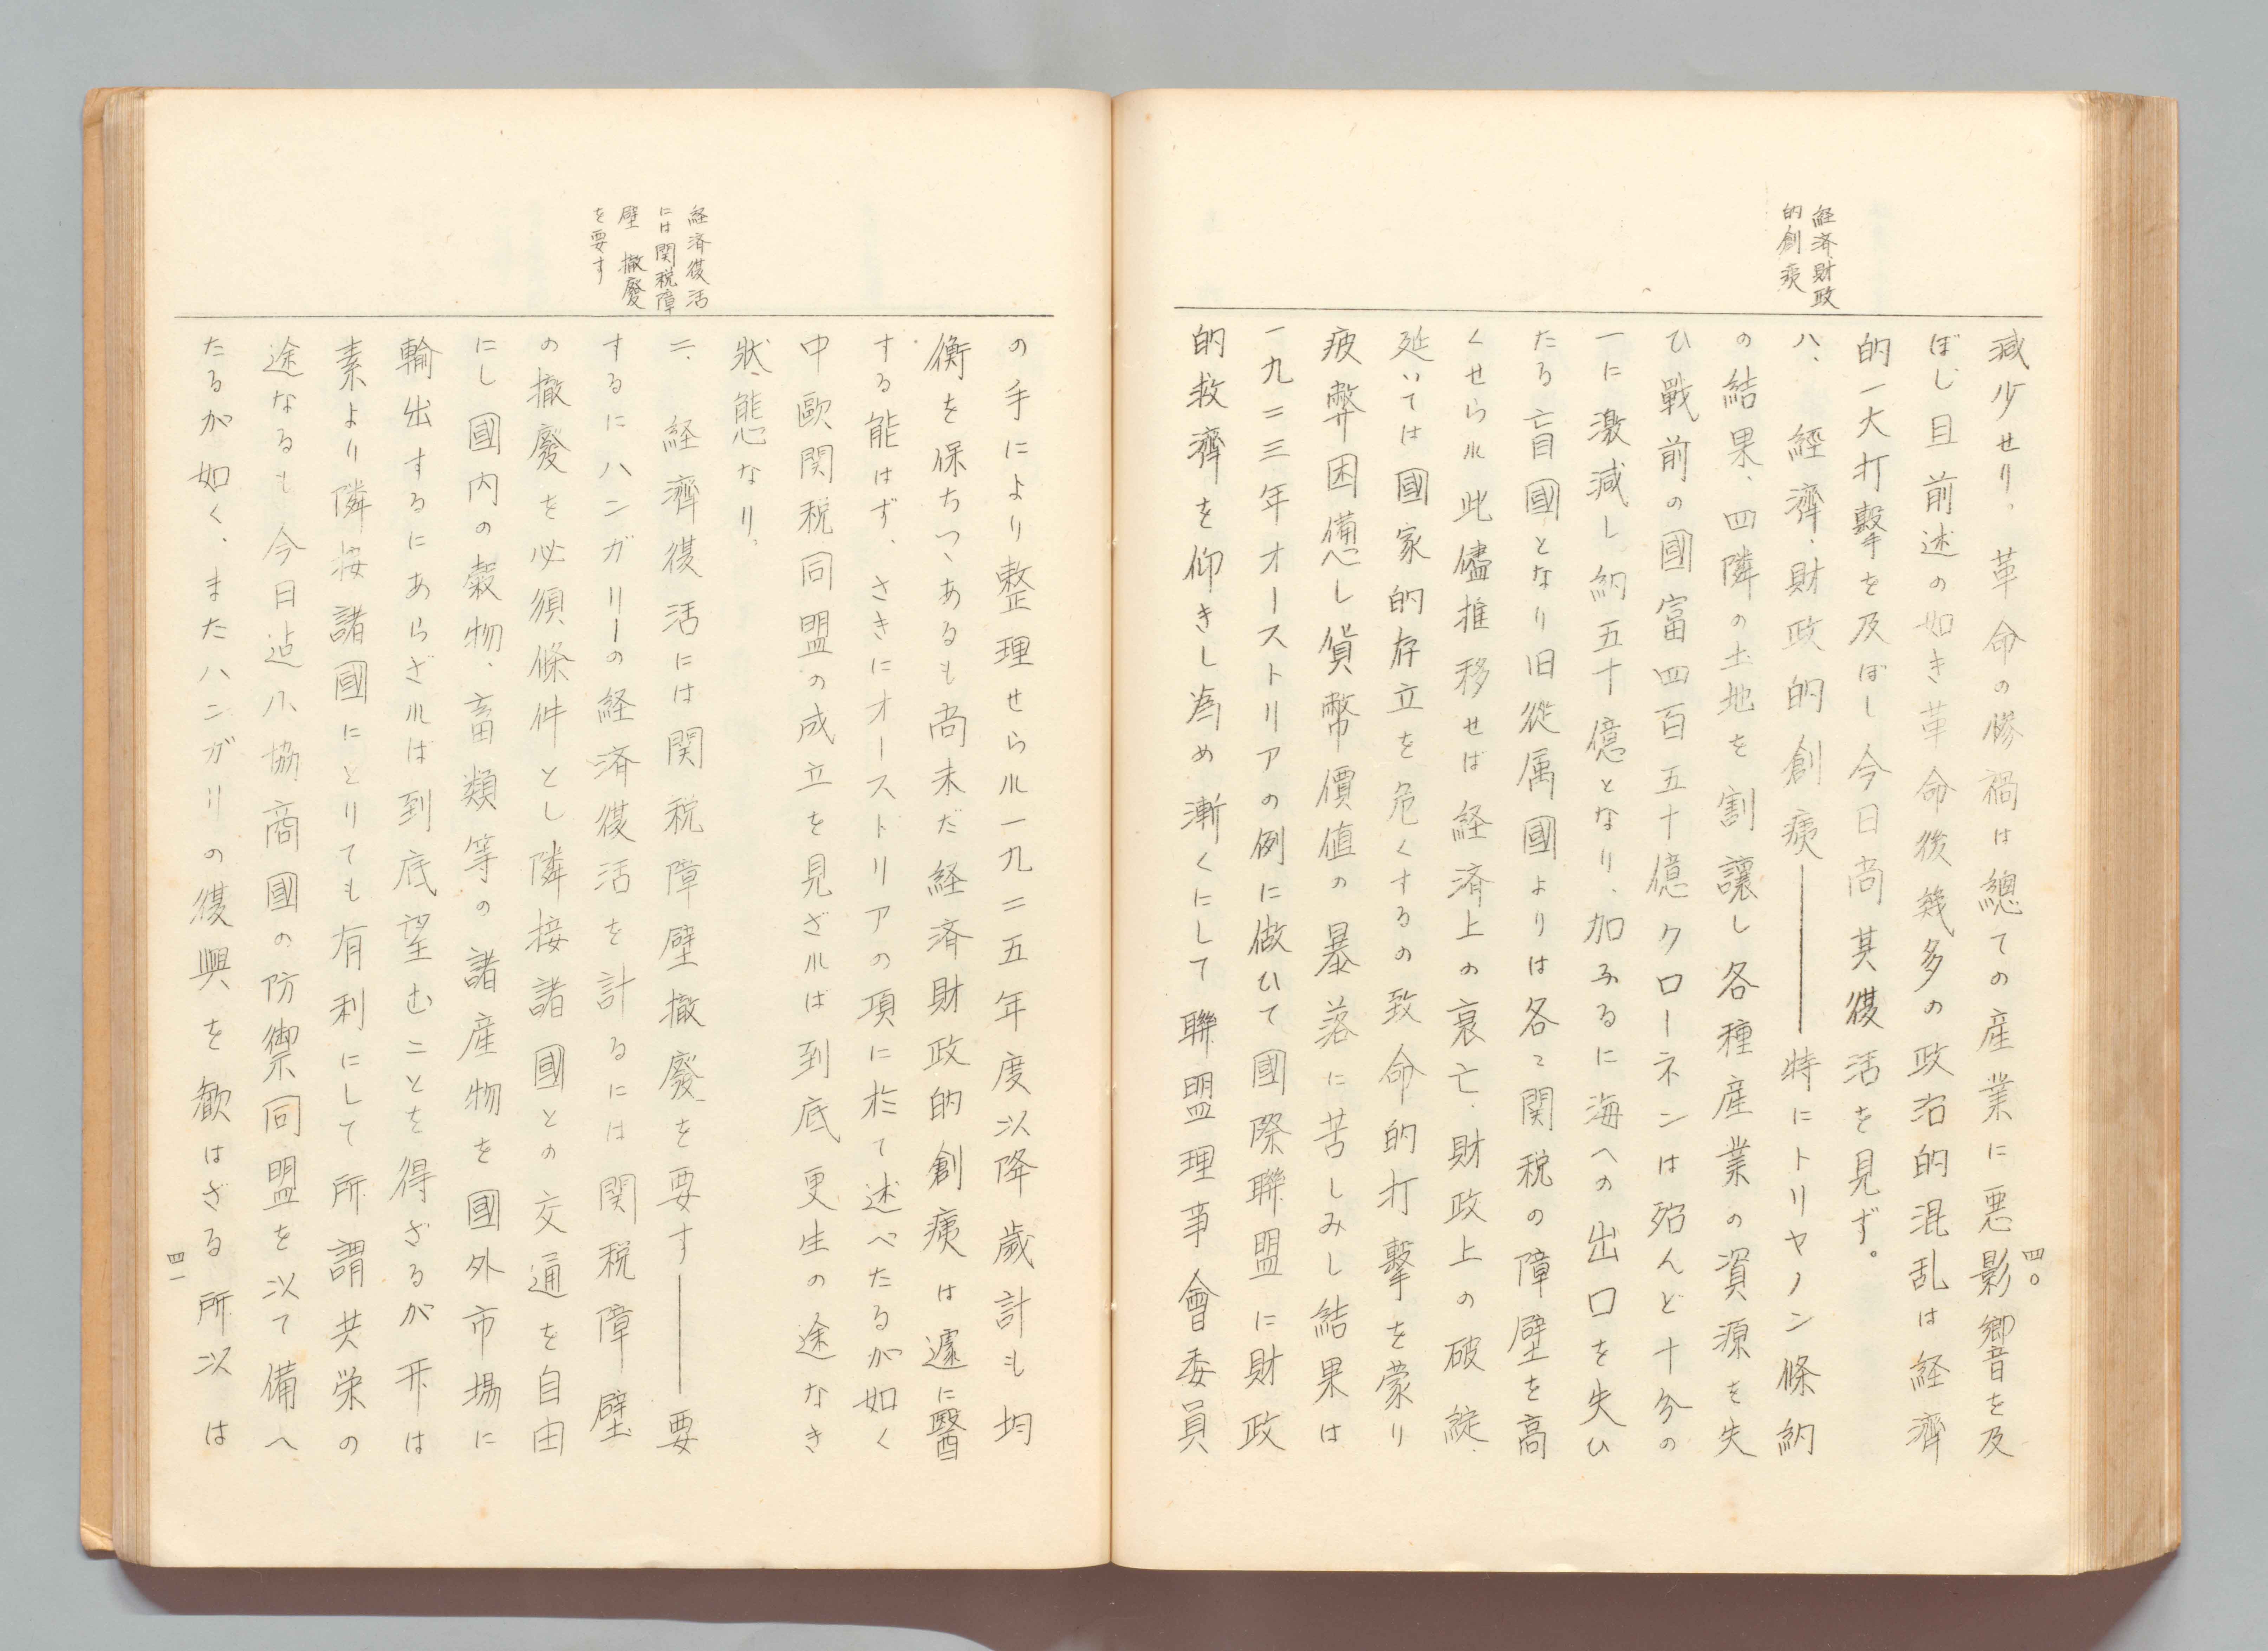 経済財政
的創痍
減少せり。革命の惨禍は總ての産業に悪影響を及
ぼし且前述の如き革命後幾多の政治的混乱は経濟
的一大打撃を及ぼし今日尚其復活を見ず。
八、經濟、財政的創痍――特にトリヤノン條納
の結果、四隣の土地を割讓し各種産業の資源を失
ひ戰前の國富四百五十億クローネンは殆んど十分の
一に激減し納五十億となり、加ふるに海への出口を失ひ
たる盲國となり旧從属國よりは各々関税の障壁を高
くせられ此儘推移せば経済上の衰亡、財政上の破綻、
延いては國家的存立を危くするの致命的打撃を蒙り
疲弊困憊し貨幣價値の暴落に苦しみし結果は
一九二三年オーストリアの例に做ひて國際聯盟に財政
的救濟を仰きし為め漸くにして聯盟理事會委員
四〇
経済復活
には関税障
壁 撤廢
を要す
の手により整理せられ一九二五年度以降歲計も均
衡を保ちつゝあるも尚未だ経済財政的創痍は遽に醫
する能はず、さきにオーストリアの項に於て述べたるが如く
中歐関税同盟の成立を見ざれは到底更生の途なき
狀態なり。
二、経濟復活には関税障壁撤廢を要す――要
するにハンガリーの経済復活を計るには関税障壁
の撤廢を必須條件とし隣接諸國との交通を自由
にし國内の穀物、畜類等の諸産物を國外市場に
輸出するにあらざれは到底望むことを得ざるが开は
素より隣接諸國にとりても有利にして所謂共栄の
途なるも今日迠小協商國の防禦同盟を以て備へ
たるが如く、またハンガリの復興を歓はざる所以は
四一